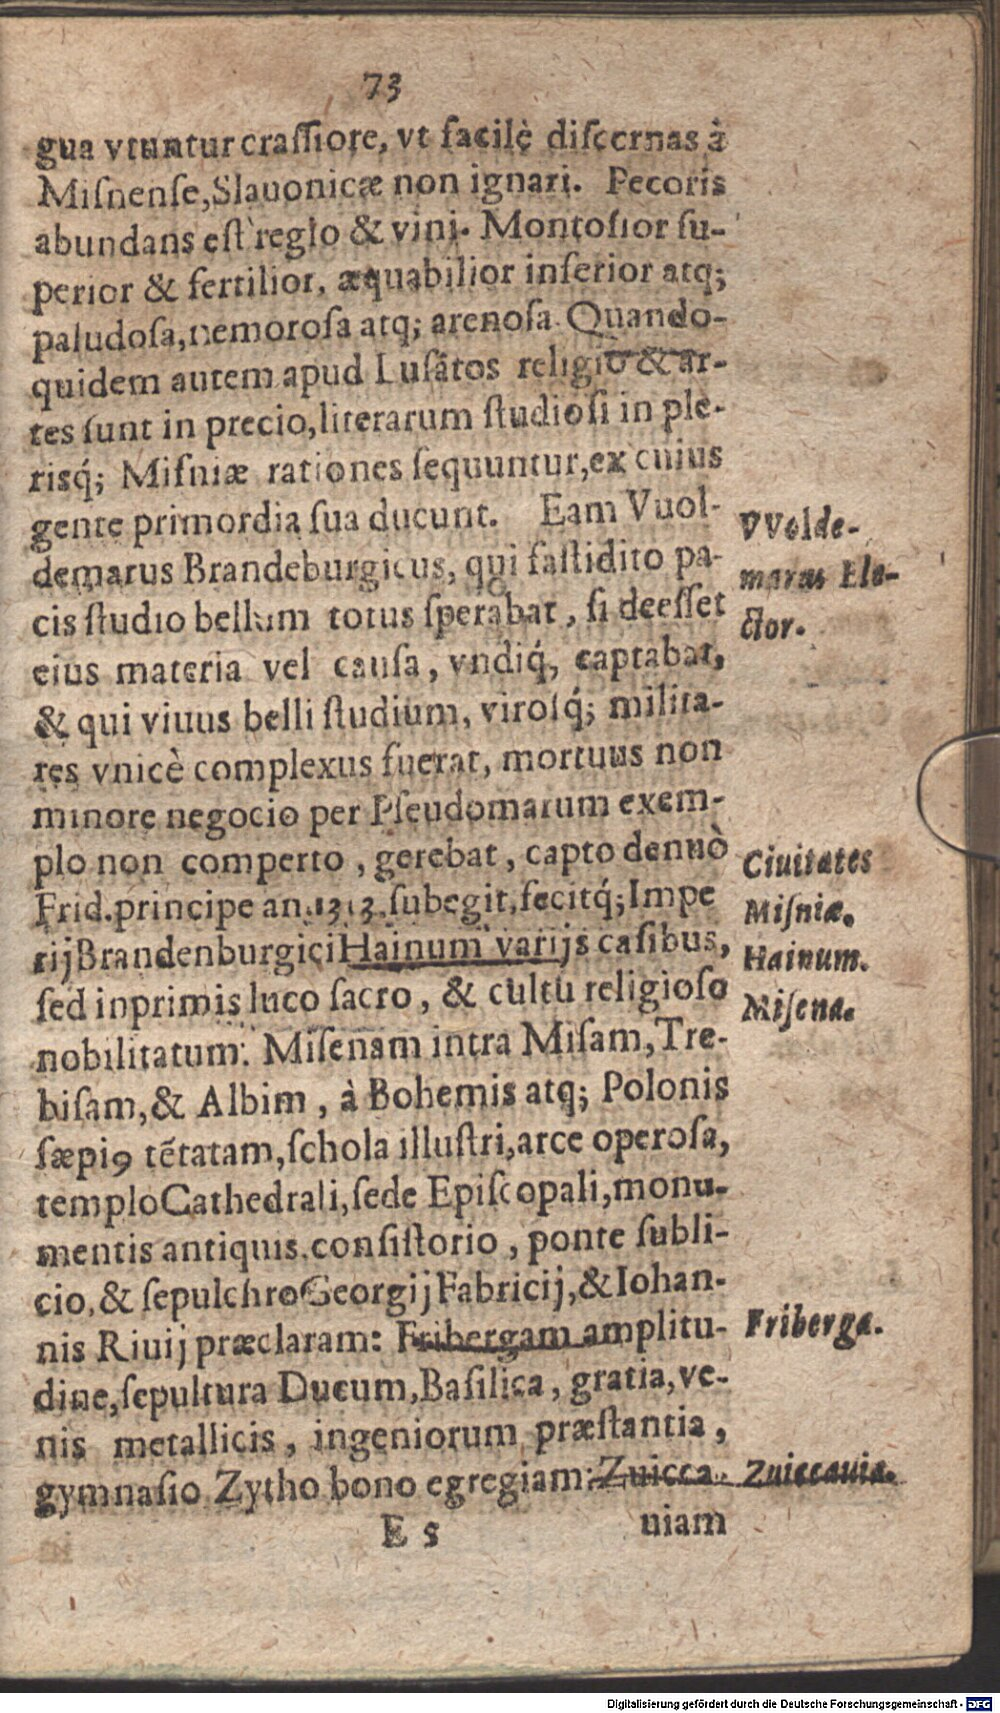 73
gua vtuntur crassiore, vt facilè discernas à
Misnense, Slauonicæ non ignari. Pecoris
abundans est regio & vini. Montosior su-
perior & fertilior, æquabilior inferior atq;
paludosa, nemorosa atq; arenosa. Quando-
quidem autem apud Lusatos religio & ar-
tes sunt in precio, literarum studiosi in ple-
risq́; Misniæ rationes sequuntur, ex cuius
gente primordia sua ducunt. Eam Vuol-
demarus Brandeburgicus, qui fastidito pa-
cis studio bellum totus sperabat, si deesset
eius materia vel causa, vndiq́, captabat,
& qui viuus belli studium, virosq́; milita-
res vnicè complexus fuerat, mortuus non
minore negocio per Pseudomarum exem-
plo non comperto, gerebat, capto denuò
Frid. principe an. 1313. subegit, fecitq́; Impe
rij Brandenburgici Hainum varijs casibus,
sed inprimis luco sacro, & cultu religioso
nobilitatum: Misenam intra Misam, Tre-
bisam, & Albim, à Bohemis atq; Polonis
sæpiꝯ tẽtatam, schola illustri, arce operosa,
templo Cathedrali, sede Episcopali, monu-
mentis antiquis, consistorio, ponte subli-
cio, & sepulchro Georgij Fabricij, & Iohan-
nis Riuij præclaram: Fribergam amplitu-
dine, sepultura Ducum, Basilica, gratia, ve-
nis metallicis, ingeniorum præstantia,
gymnasio Zytho bono egregiam: Zuicca-
E 5 uiam
VVolde-
marus Ele-
ctor.
Ciuitates
Misniæ.
Hainum.
Misena.
Friberga.
Zuiccauia.
Digitalisierung gefördert durch die Deutsche Forschungsgemeinschaft - DFG